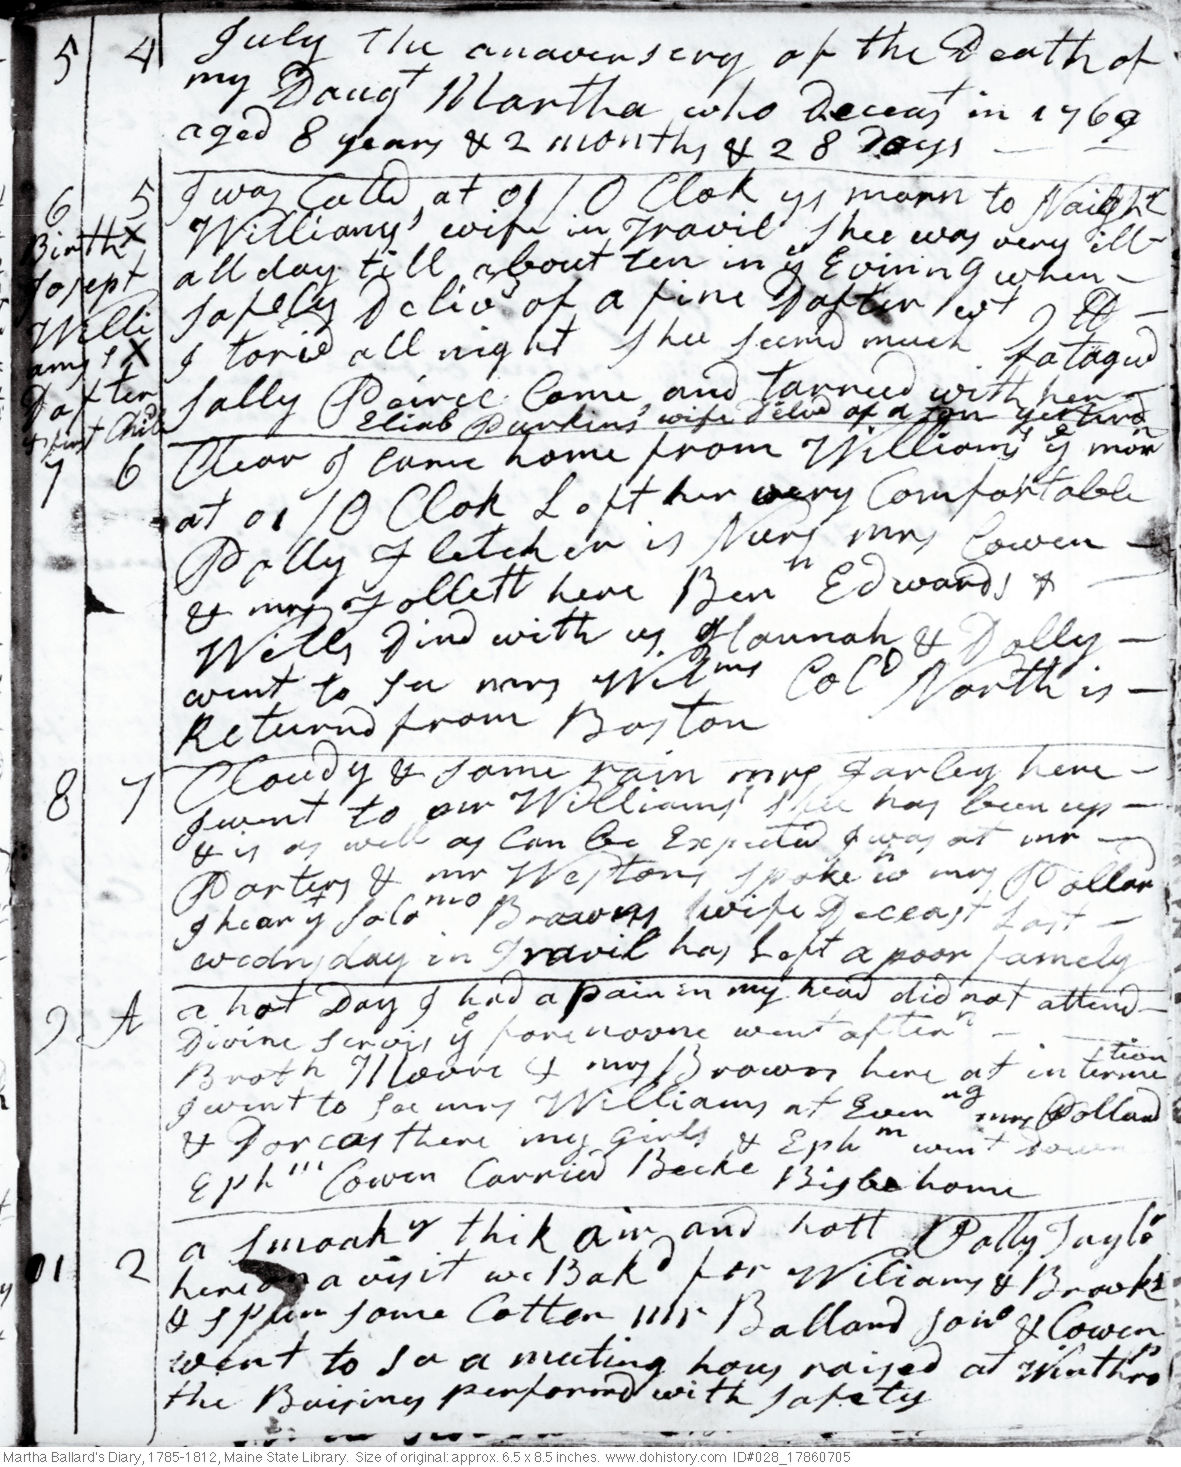 5 4 July The anaversery of the Death of
my Daugt Martha who Deceast in 1769
aged 8 years & 2 months & 28 Days
6 5 I was Calld at 01 / O Clok ys morn to Naighr
Birth X Williams' wife in Travil Shee was very ill
Josept all day till about ten in ye Evining when
Willi Safely Delivd of a fine Dafter wt
ams 1st X I taried all night Shee seemd much fatagud
Dafter Sally Peirce Came and tarried with her
& first Child Eliab Purkins' wife Delivd of a son yesterd
7 6 Clear I came home from Williams' ye morn
at 01 / O Clok Left her very Comfortable
Polly Fletcher is Nurs mrs Cowen
& mrs Follett here Benn Edwards &
Wills Dind with us Hannah & Dolly
went to see mrs Wilms Colo North is
Returnd from Boston
8 7 Cloudy & some rain mrs Farley here
I went to mr Williams' shee has been up
& is as well as Can be Expected I was at mr
Porters & mr Westons spoke to mrs Pollard
I hear ye Solomo Browns wife Deceast Last
wednsday in Travil has Left a poor famely
9 A a hot Day I had a pain in my head did not attend
Divine Servis ye forenoone went aftern
Broth Moore & mrs Brown here at interme
tion
I went to see mrs Williams at Evening mrs Pollard
& Dorcas there my girls & Ephm went Down
Ephm Cowen Carried Becke Bisbe home
01 2 a Smoaky thik air and hott Polly Taylor
here on a visit we Bakd for Wiliams & Brooks
& spun some Cotten mr Ballard Sons & Cowen
went to see a meeting hous raised at Winthrop
the Buisiness performd with safety
Martha Ballard's Diary, 1785-1812, Maine State Library. Size of original: approx. 6.5 x 8.5 inches. www.dohistory.com ID#028_17860705